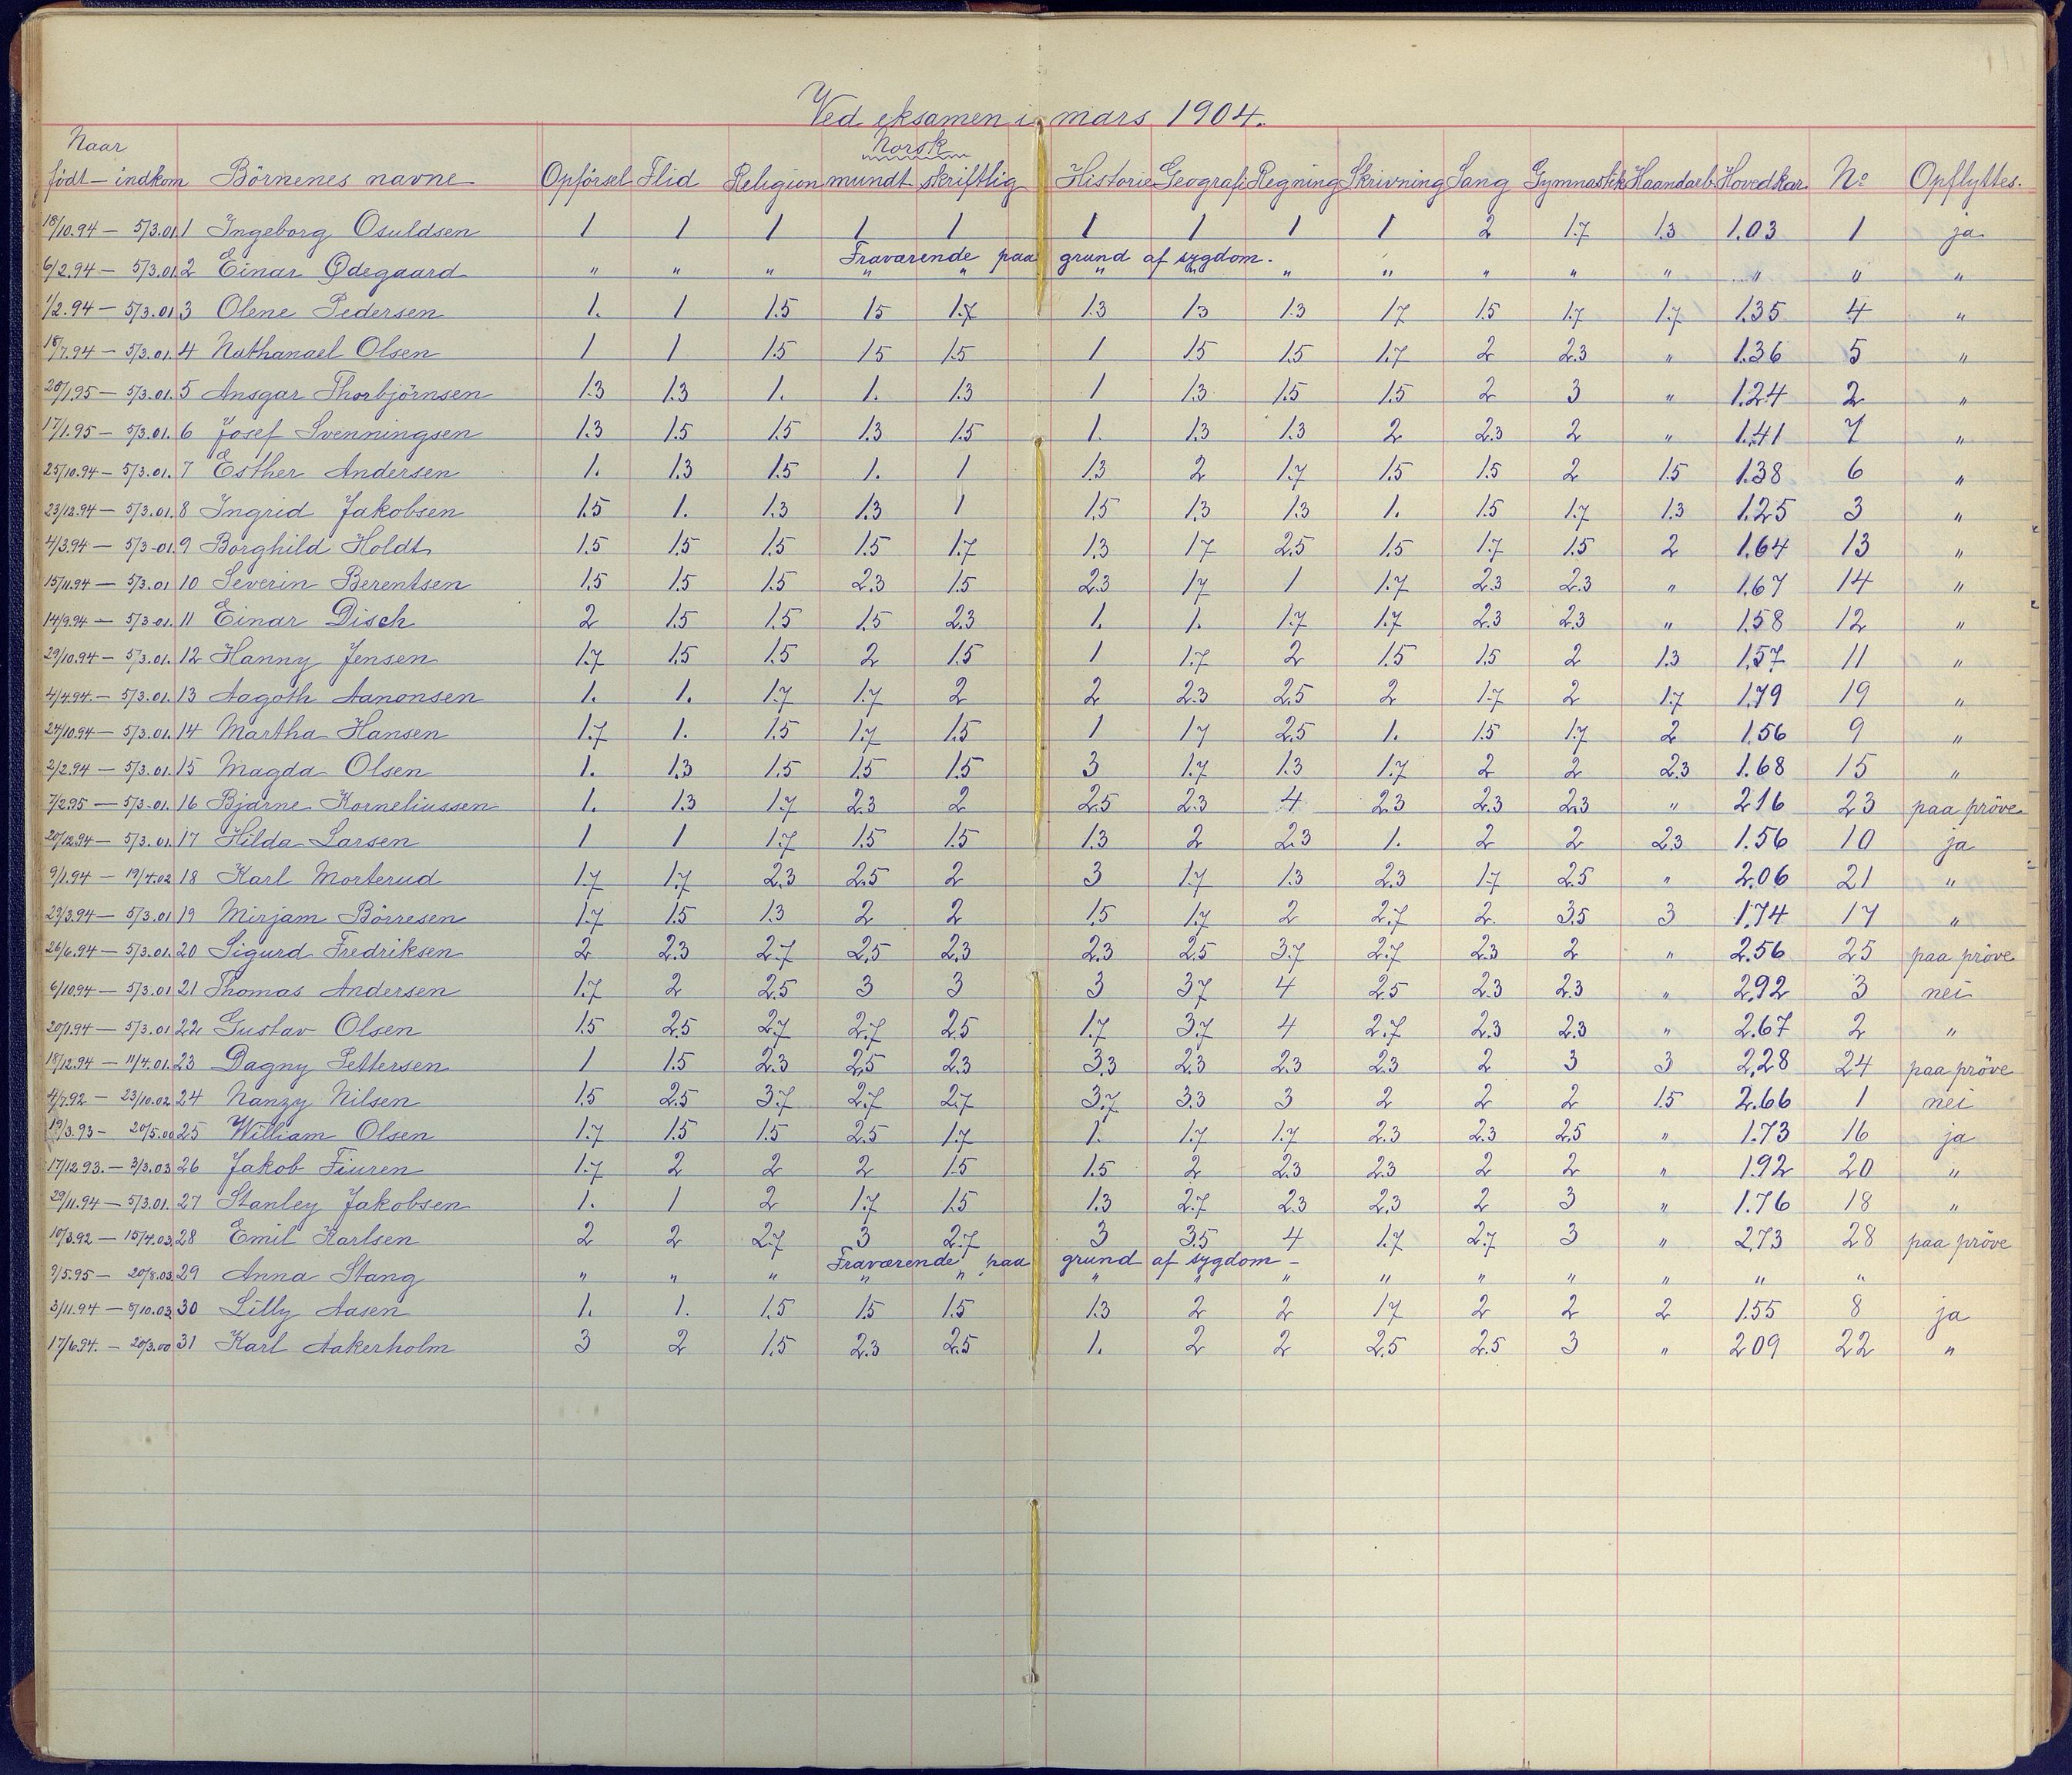 Ved eksamen i mars 1904.
Naar Norsk
födt – indkom Börnenes navne Opförsel Flid Religion mundt. skriftlig Historie Geografi Regning Skrivning Sang Gymnastik Haandarb. Hovedkar. No Opflyttes.
18/10.94 – 5/3.01 1 Ingeborg Osuldsen 1 1 1 1 1 1 1 1 1 2 1.7 1.3 1.03 1 ja
Fraværende paa grund af sygdom.
6/2.94 – 5/3.01. 2 Einar Ødegaard " " " " " " " " " " " " " " "
1/2.94 – 5/3.01 3 Olene Pedersen 1. 1 1.5 1.5 1.7 1.3 1.3 1.3 1.7 1.5 1.7 1.7 1.35 4 "
18/7.94 – 5/3.01. 4 Nathanael Olsen 1 1 1.5 1.5 1.5 1 1.5 1.5 1.7 2 2.3 " 1.36 5 "
20/1.95 – 5/3.01. 5 Ansgar Thorbjörnsen 1.3 1.3 1. 1. 1.3 1 1.3 1.5 1.5 2 3 " 1.24 2 "
17/1.95 – 5/3.01. 6 Josef Svenningsen 1.3 1.5 1.5 1.3 1.5 1. 1.3 1.3 2 2.3 2 " 1.41 7 "
25/10.94 – 5/3.01. 7 Esther Andersen 1. 1.3 1.5 1. 1 1.3 2 1.7 1.5 1.5 2 1.5 1.38 6 "
23/12.94 – 5/3.01. 8 Ingrid Jakobsen 1.5 1. 1.3 1.3 1 1.5 1.3 1.3 1. 1.5 1.7 1.3 1.25 3 "
4/3.94 – 5/3.01. 9 Borghild Holdt 1.5 1.5 1.5 1.5 1.7 1.3 1.7 2.5 1.5 1.7 1.5 2 1.64 13 "
15/11.94 – 5/3.01 10 Severin Berentsen 1.5 1.5 1.5 2.3 1.5 2.3 1.7 1 1.7 2.3 2.3 " 1.67 14 "
14/9.94 – 5/3.01. 11 Einar Disch 2 1.5 1.5 1.5 2.3 1. 1. 1.7 1.7 2.3 2.3 " 1.58 12 "
29/10.94 – 5/3.01. 12 Hanny Jensen 1.7 1.5 1.5 2 1.5 1 1.7 2 1.5 1.5 2 1.3 1.57 11 "
4/4.94. – 5/3.01. 13 Aagoth Aanonsen 1. 1. 1.7 1.7 2 2 2.3 2.5 2 1.7 2 1.7 1.79 19 "
24/10.94 – 5/3.01. 14 Martha Hansen 1.7 1. 1.5 1.7 1.5 1 1.7 2.5 1. 1.5 1.7 2 1.56 9 "
2/2.94 – 5/3.01. 15 Magda Olsen 1. 1.3 1.5 1.5 1.5 3 1.7 1.3 1.7 2 2 2.3 1.68 15 "
7/2.95 – 5/3.01. 16 Bjarne Korneliussen 1. 1.3 1.7 2.3 2 2.5 2.3 4 2.3 2.3 2.3 " 2.16 23 paa pröve
20/12.94 – 5/3.01. 17 Hilda Larsen 1 1 1.7 1.5 1.5 1.3 2 2.3 1. 2 2 2.3 1.56 10 ja
9/1.94 – 19/4.02 18 Karl Morterud 1.7 1.7 2.3 2.5 2 3 1.7 1.3 2.3 1.7 2.5 " 2.06 21 "
29/3.94 – 5/3.01 19 Mirjam Börresen 1.7 1.5 1.3 2 2 1.5 1.7 2 2.7 2 3.5 3 1.74 17 "
26/6.94 – 5/3.01. 20 Sigurd Fredriksen 2 2.3 2.7 2.5 2.3 2.3 2.5 3.7 2.7 2.3 2 " 2.56 25 paa pröve
6/10.94 – 5/3.01 21 Thomas Andersen 1.7 2 2.5 3 3 3 3.7 4 2.5 2.3 2.3 " 2.92 3 nei
20/1.94 – 5/3.01 22 Gustav Olsen 1.5 2.5 2.7 2.7 2.5 1.7 3.7 4 2.7 2.3 2.3 " 2.67 2 "
18/12.94 – 11/4.01. 23 Dagny Pettersen 1 1.5 2.3 2.5 2.3 3.3 2.3 2.3 2.3 2 3 3 2.28 24 paa pröve
4/7.92 – 23/10.02 24 Nanzy Nilsen 1.5 2.5 3.7 2.7 2.7 3.7 3.3 3 2 2 2 1.5 2.66 1 nei
19/3.93 – 20/5.00 25 William Olsen 1.7 1.5 1.5 2.5 1.7 1. 1.7 1.7 2.3 2.3 2.5 " 1.73 16 ja
17/12.93. – 3/3.03 26 Jakob Fiuren 1.7 2 2 2 1.5 1.5 2 2.3 2.3 2 2 " 1.92 20 "
29/11.94 – 5/3.01. 27 Stanley Jakobsen 1. 1 2 1.7 1.5 1.3 2.7 2.3 2.3 2 3 " 1.76 18 "
10/3.92 – 15/4.03. 28 Emil Karlsen 2 2 2.7 3 2.7 3 3.5 4 1.7 2.7 3 " 2.73 28 paa pröve
Fraværende paa grund af sygdom –
9/5.95 – 20/8.03. 29 Anna Stang " " " " " " " " " " " " " "
3/11.94 – 8/10.03. 30 Lilly Aasen 1. 1. 1.5 1.5 1.5 1.3 2 2 1.7 2 2 2 1.55 8 ja
17/6.94. – 20/3.00 31 Karl Aakerholm 3 2 1.5 2.3 2.5 1. 2 2 2.5 2.5 3 " 2.09 22 "